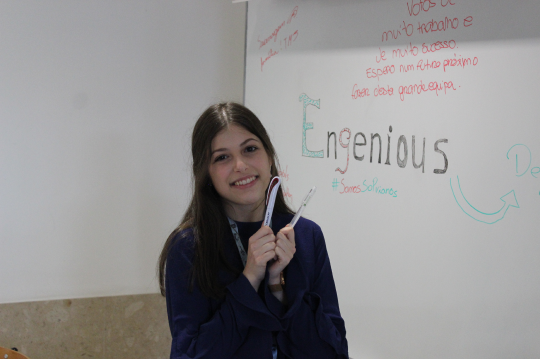 Votos de
muito trabalho e
de muito sucesso.
Espero num futuro próximo
fazer desta grande equipa.
Engenious
#SomosSolidários
De